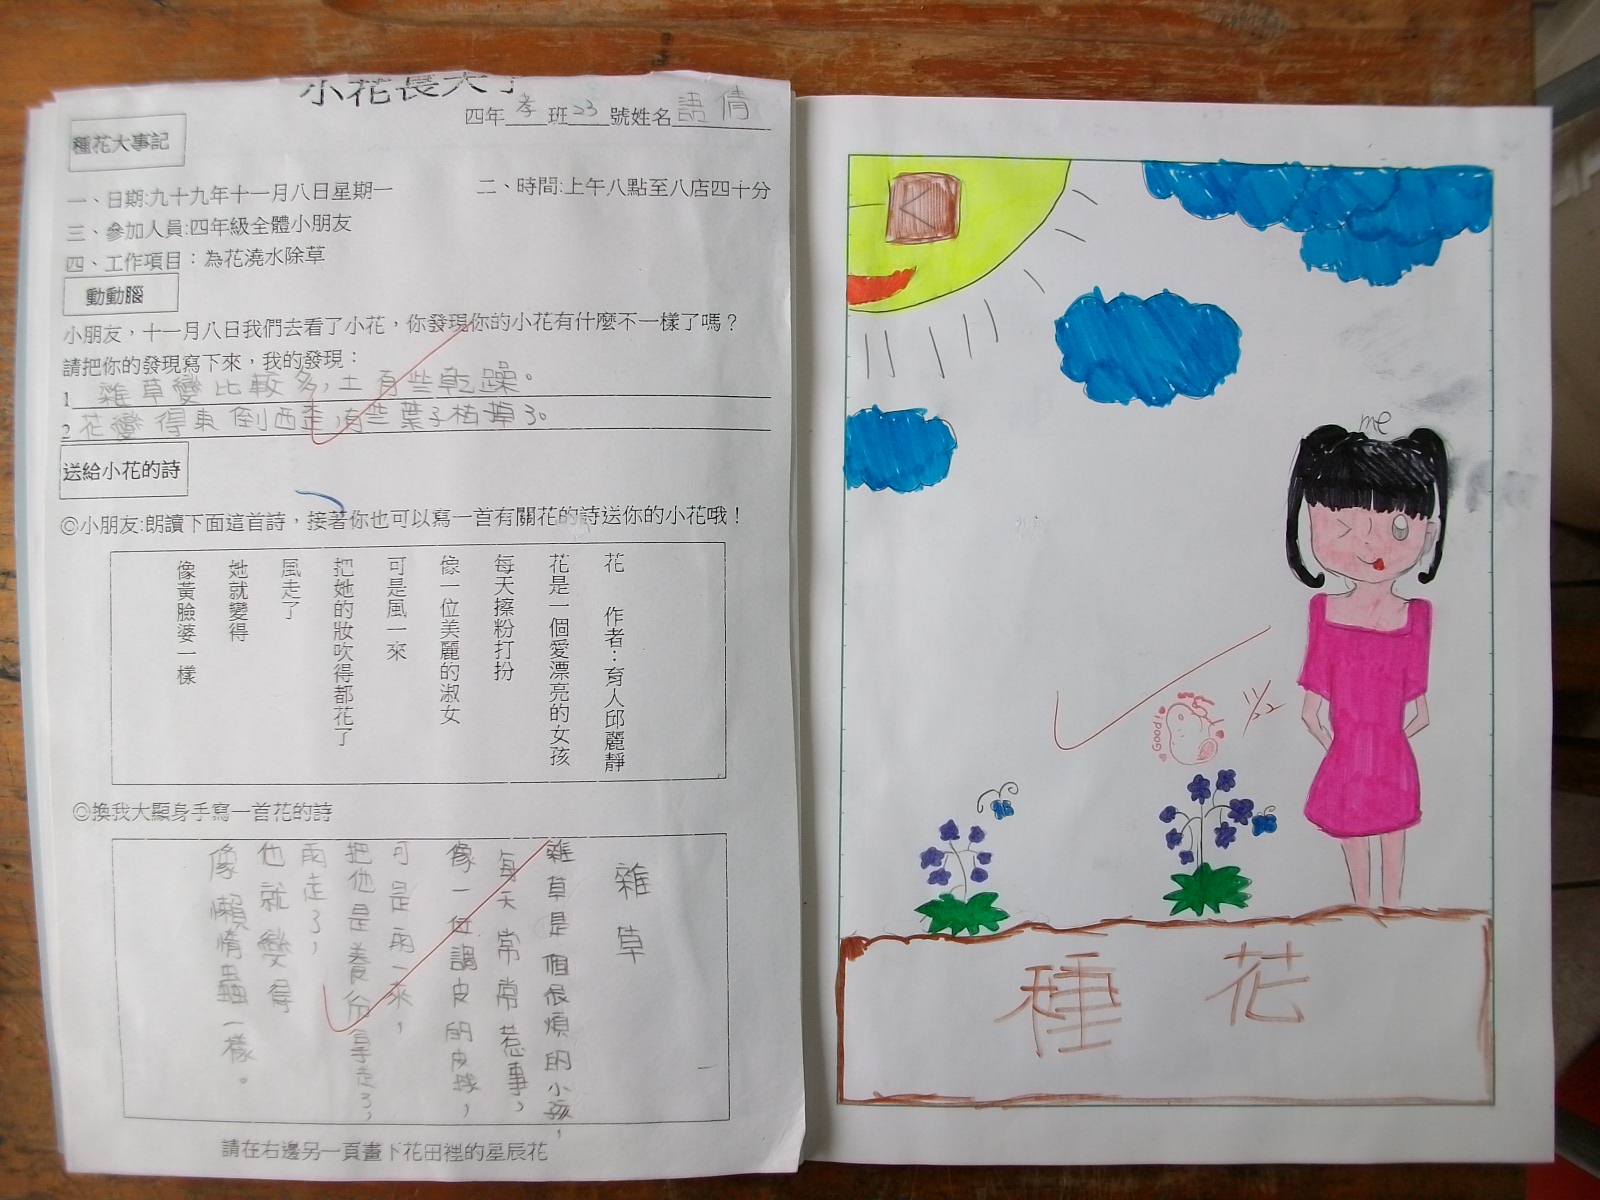 小花長大了
四年孝班23號姓名語倩
種花大事記
一、日期:九十九年十一月八日星期一 二、時間:上午八點至八店四十分
三、參加人員:四年級全體小朋友
四、工作項目：為花澆水除草
動動腦
小朋友，十一月八日我們去看了小花，你發現你的小花有什麼不一樣了嗎？
請把你的發現寫下來，我的發現：
1 雜草變比較多,土有些乾躁。
2 花變得東倒西歪,有些葉子枯掉了。
送給小花的詩
◎小朋友:朗讀下面這首詩，接著你也可以寫一首有關花的詩送你的小花哦！
花 作者：育人邱麗靜
花是一個愛漂亮的女孩
每天擦粉打扮
像一位美麗的淑女
可是風一來
把她的妝吹得都花了
風走了
她就變得
像黃臉婆一樣
◎換我大顯身手寫一首花的詩
雜草
雜草是個很煩的小孩,
每天常常惹事,
像一位調皮的皮球,
可是雨一來,
把他是養份拿走了,
雨走了,
他就變得
像懶惰蟲一樣。
請在右邊另一頁畫下花田裡的星辰花
me
Good!
11/22
種花